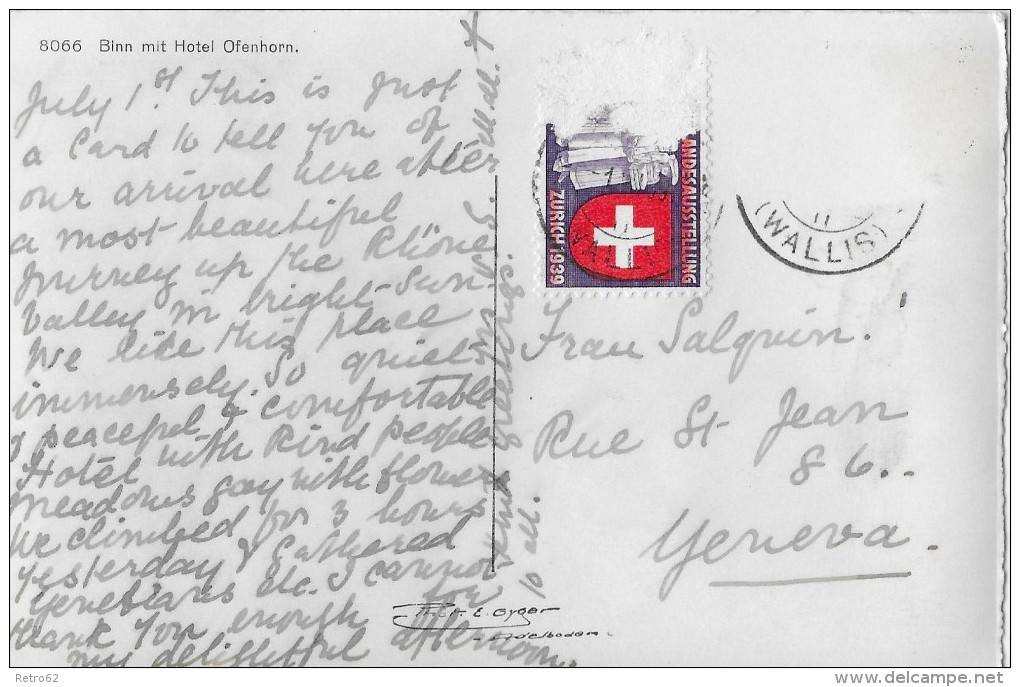 8066 Binn mit Hotel Ofenhorn.
July 1st This is just
a Card to tell you of
our arrival here after
a most beautiful
journey up the Rhone
Valley in bright Sun-
We like this place
immensely. So quiet
& peaceful & comfortable
Hotel with kind people
meadows gay with flowers
We climbed for 3 hours
yesterday & gathered
etc. I cannot
thank you enough for
my delightful afternoon.
Kind greetings
to all.
LANDESAUSSTELLUNG
ZÜRICH 1939
11
WALLIS
11
(WALLIS)
Frau Salquin.
Rue St Jean
86..
Geneva.
Phot. E. Gyger
Adelboden
Retro62
delcampe.net